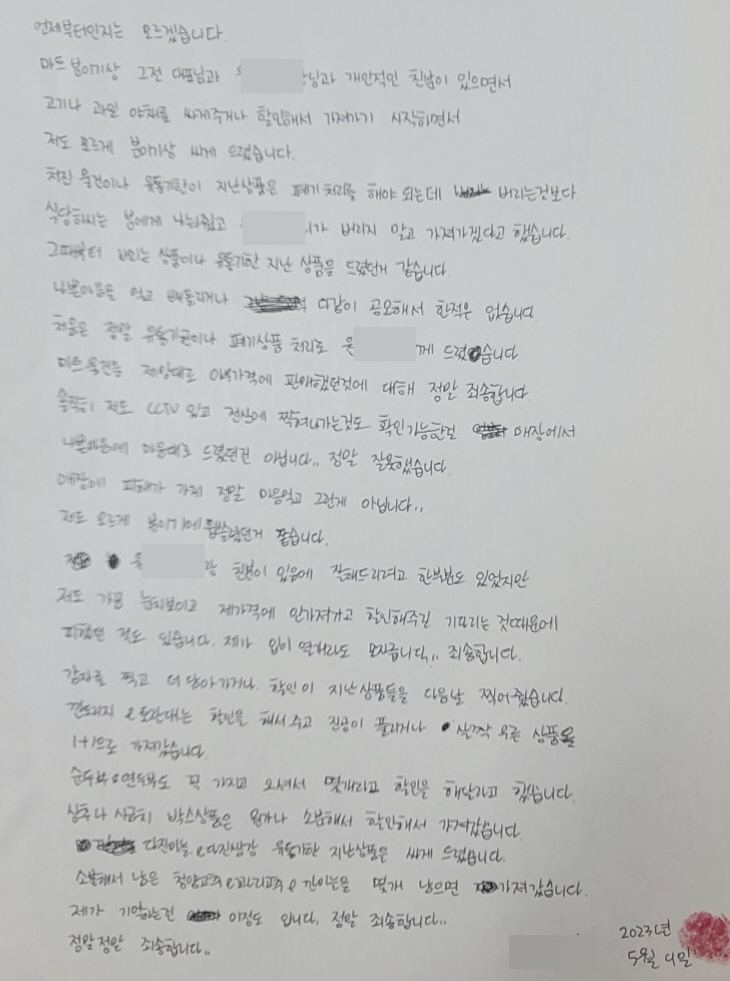 언제부터인지는 모르겠습니다.
마트 분위기상 그전 대표님과 님과 개인적인 친분이 있으면서
고기나 과일 야채를 싸게주거나 할인해서 가져가기 시작하면서
저도 모르게 분위기상 싸게 드렸습니다.
처진 물건이나 유통기한이 지난상품은 폐기 처리를 해야 되는데 버리는것보다
식당하시는 분에게 나눠줬고 가 버리지 말고 가져가겠다고 했습니다.
그때부터 버리는 상품이나 유통기한 지난 상품을 드렸던거 같습니다.
나쁜마음을 먹고 빼돌리거나 다같이 공모해서 한적은 없습니다
처음은 정말 유통기한이나 폐기상품 처리로 윤 께 드렸습니다.
마트물건을 제멋대로 가격에 판매했던것에 대해 정말 죄송합니다.
솔직히 저도 CCTV 있고 전산에 찍혀나가는것도 확인가능한걸 매장에서
나쁜마음에 마음대로 드렸던건 아닙니다.. 정말 잘못했습니다.
매장에 피해가 가게 정말 마음먹고 그런게 아닙니다..
저도 모르게 분위기에 휩쓸렸던거 같습니다.
윤 랑 친분이 있음에 잘해드리려고 한부분도 있었지만
저도 가끔 눈치보이고 제가격에 안가져가고 할인해주길 기다리는 것때문에
피했던 적도 있습니다. 제가 입이 열개라도 모자릅니다.. 죄송합니다.
감자를 찍고 더 담아가거나, 할인이 지난상품들을 다음날 찍어줬습니다.
깐도라지 e 토란대는 할인을 해서 주고 진공이 풀리거나 살짝 무른 상품을
1+1으로 가져갔습니다.
순두부e연두부도 꼭 가지고 오셔서 몇개라고 할인을 해달라고 했습니다.
상추나 시금치 박스상품은 원가나 소분해서 할인해서 가져갔습니다.
다진마늘e다진생강 유통기한 지난상품은 싸게 드렸습니다.
소분해서 남은 청양고추e꽈리고추e깐마늘은 몇개 남으면 가져갔습니다.
제가 기억하는건 이정도 입니다. 정말 죄송합니다..
정말정말 죄송합니다..
2023년
5월 4일